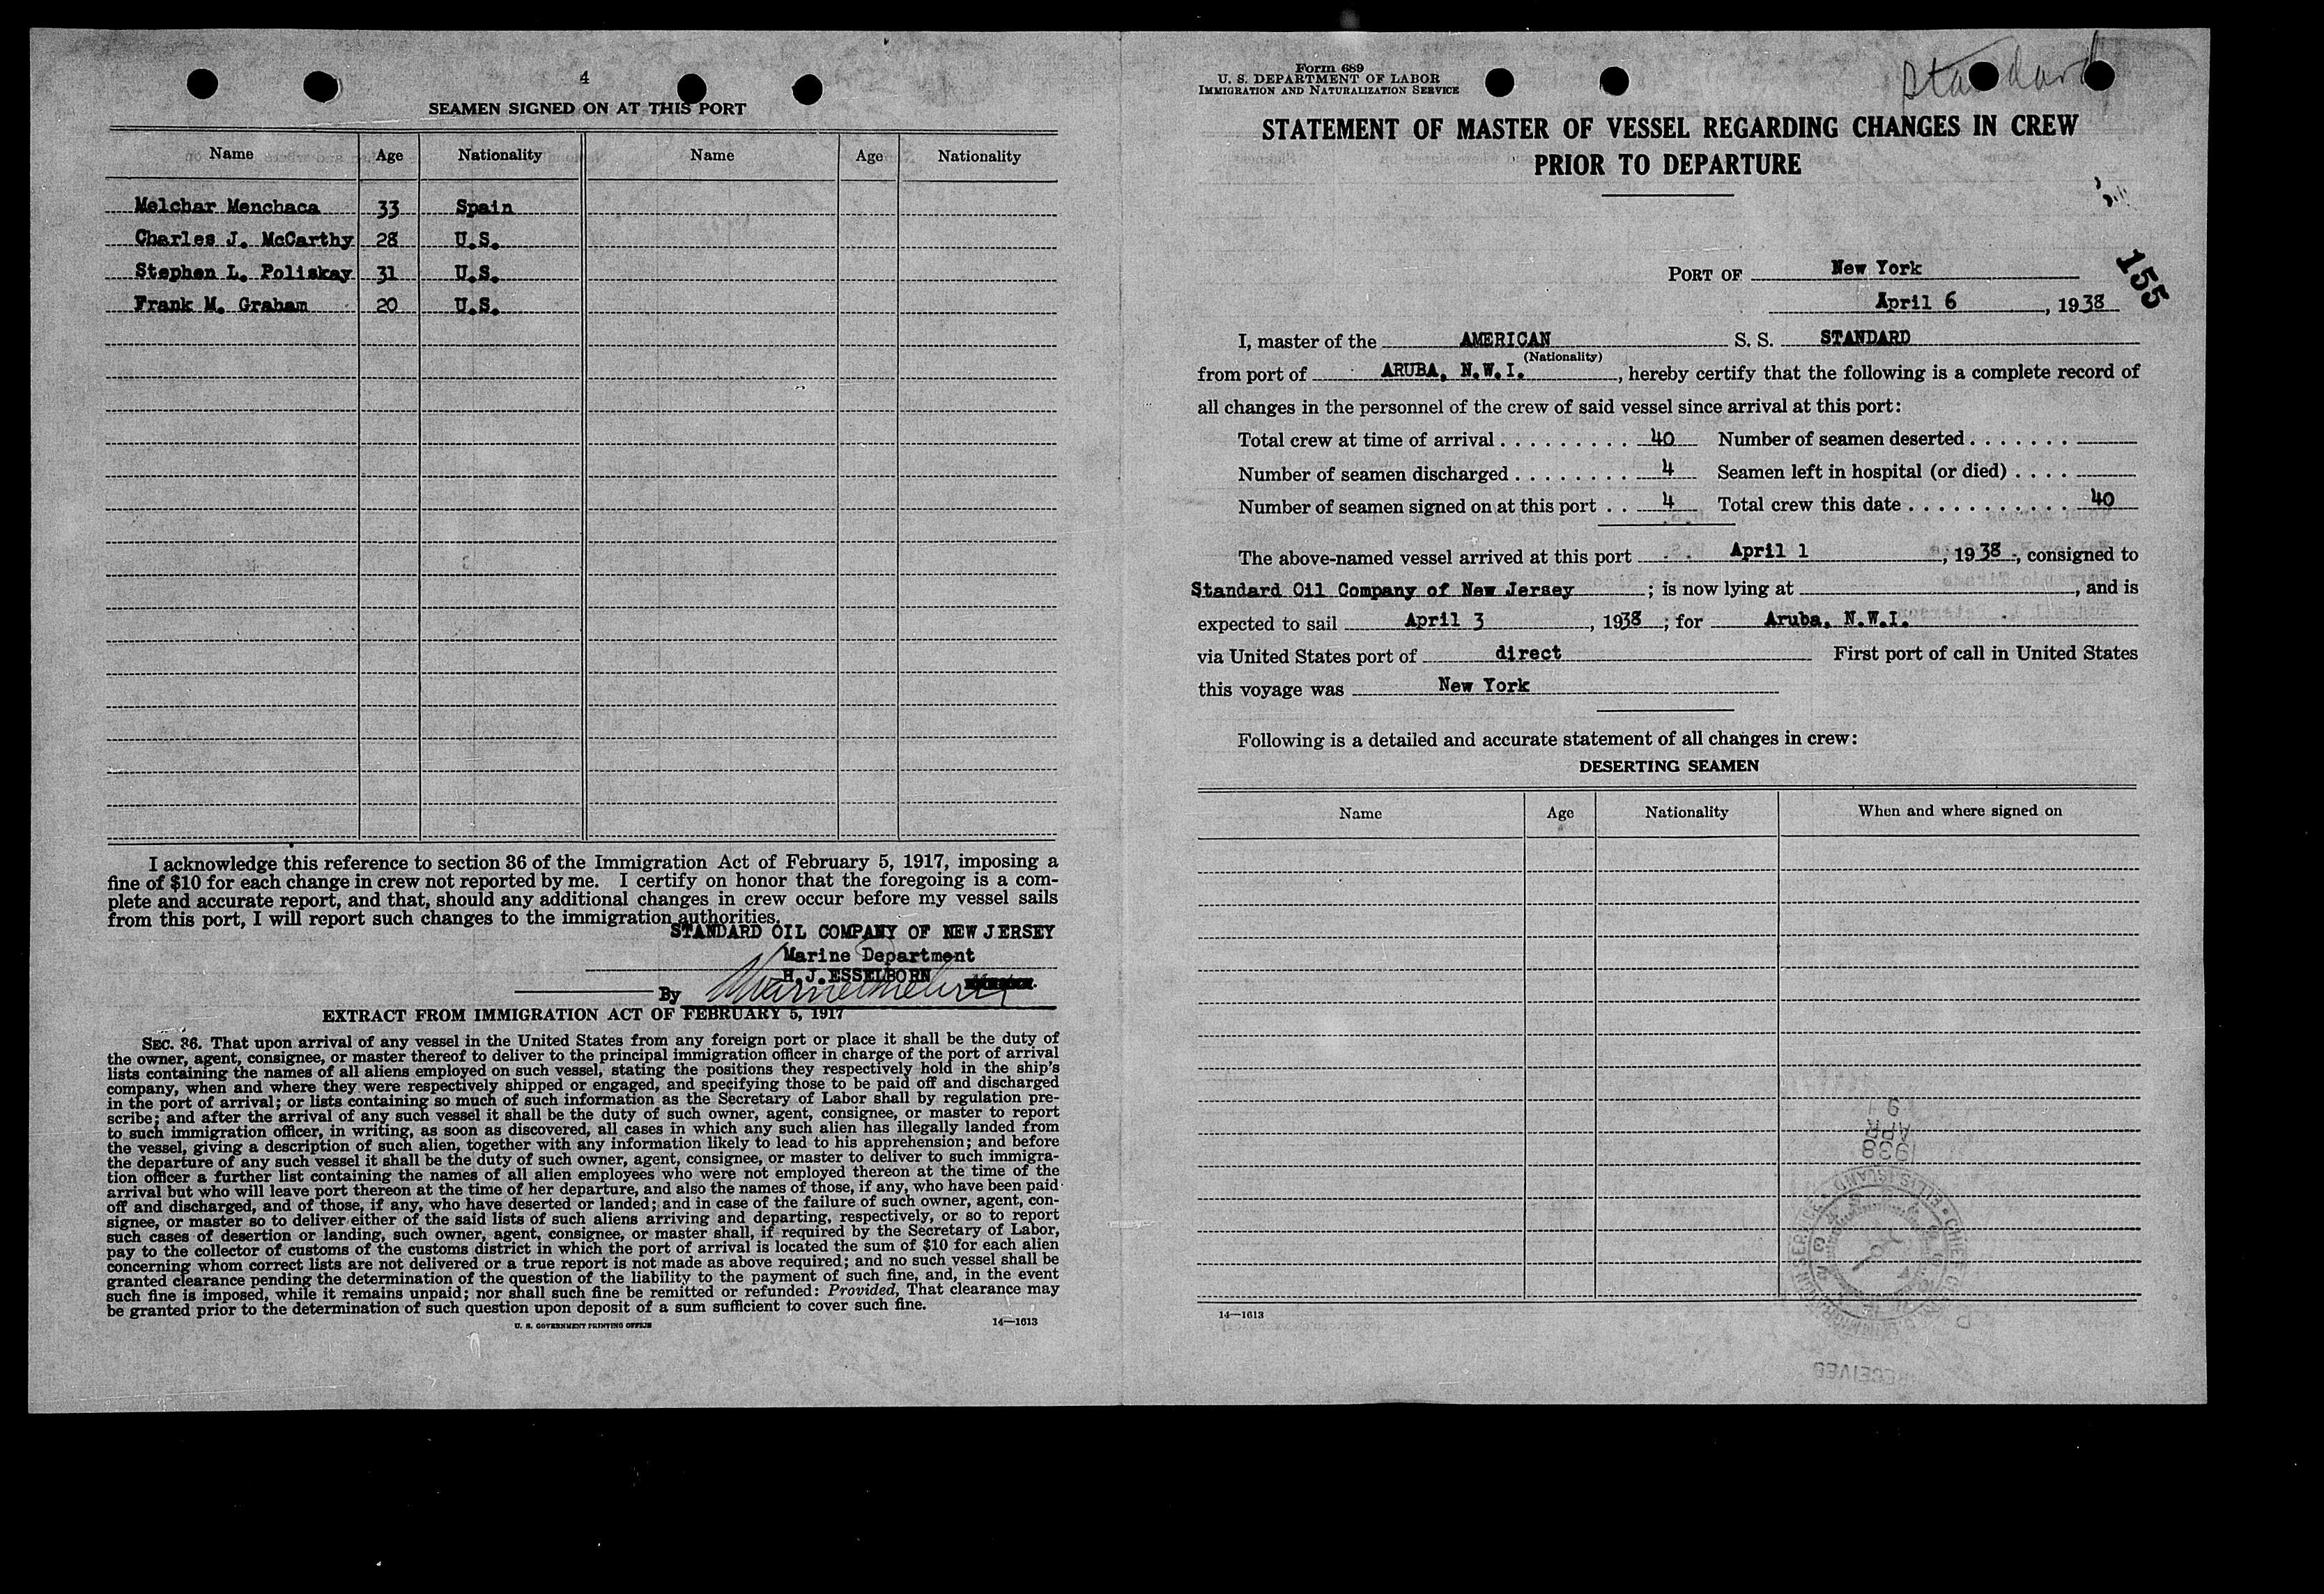 4
SEAMEN SIGNED ON AT THIS PORT
Name Age Nationality Name Age Nationality
Melchar Menchaca 33 Spain
Charles J. McCarthy 28 U.S.
Stephen L. Poliskay 31 U.S.
Frank M. Graham 20 U.S.
I acknowledge this reference to section 36 of the Immigration Act of February 5, 1917, imposing a
fine of $10 for each change in crew not reported by me. I certify on honor that the foregoing is a com-
plete and accurate report, and that, should any additional changes in crew occur before my vessel sails
from this port, I will report such changes to the immigration authorities.
STANDARD OIL COMPANY OF NEW JERSEY
Marine Department
H.J. ESSELBORN
By
EXTRACT FROM IMMIGRATION ACT OF FEBRUARY 5, 1917
SEC. 36. That upon arrival of any vessel in the United States from any foreign port or place it shall be the duty of
the owner, agent, consignee, or master thereof to deliver to the principal immigration officer in charge of the port of arrival
lists containing the names of all aliens employed on such vessel, stating the positions they respectively hold in the ship's
company, when and where they were respectively shipped or engaged, and specifying those to be paid off and discharged
in the port of arrival; or lists containing so much of such information as the Secretary of Labor shall by regulation pre-
scribe; and after the arrival of any such vessel it shall be the duty of such owner, agent, consignee, or master to report
to such immigration officer, in writing, as soon as discovered, all cases in which any such alien has illegally landed from
the vessel, giving a description of such alien, together with any information likely to lead to his apprehension; and before
the departure of any such vessel it shall be the duty of such owner, agent, consignee, or master to deliver to such immigra-
tion officer a further list containing the names of all alien employees who were not employed thereon at the time of the
arrival but who will leave port thereon at the time of her departure, and also the names of those, if any, who have been paid
off and discharged, and of those, if any, who have deserted or landed; and in case of the failure of such owner, agent, con-
signee, or master so to deliver either of the said lists of such aliens arriving and departing, respectively, or so to report
such cases of desertion or landing, such owner, agent, consignee, or master shall, if required by the Secretary of Labor,
pay to the collector of customs of the customs district in which the port of arrival is located the sum of $10 for each alien
concerning whom correct lists are not delivered or a true report is not made as above required; and no such vessel shall be
granted clearance pending the determination of the question of the liability to the payment of such fine, and, in the event
such fine is imposed, while it remains unpaid; nor shall such fine be remitted or refunded: Provided, That clearance may
be granted prior to the determination of such question upon deposit of a sum sufficient to cover such fine.
U. S. GOVERNMENT PRINTING OFFICE 14—1613
Form 689
U. S. DEPARTMENT OF LABOR
IMMIGRATION AND NATURALIZATION SERVICE
Standard
STATEMENT OF MASTER OF VESSEL REGARDING CHANGES IN CREW
PRIOR TO DEPARTURE
155
PORT OF New York
April 6, 1938
I, master of the AMERICAN S. S. STANDARD
(Nationality)
from port of ARUBA, N.W.I., hereby certify that the following is a complete record of
all changes in the personnel of the crew of said vessel since arrival at this port:
Total crew at time of arrival . . . . . . . . . 40 Number of seamen deserted . . . . . . .
Number of seamen discharged . . . . . . . . 4 Seamen left in hospital (or died) . . . .
Number of seamen signed on at this port . . 4 Total crew this date . . . . . . . . . . . 40
The above-named vessel arrived at this port April 1, 1938, consigned to
Standard Oil Company of New Jersey; is now lying at , and is
expected to sail April 3, 1938; for Aruba, N.W.I.
via United States port of direct First port of call in United States
this voyage was New York
Following is a detailed and accurate statement of all changes in crew:
DESERTING SEAMEN
Name Age Nationality When and where signed on
APR
1938
ELLIS ISLAND
RECEIVED
14—1613